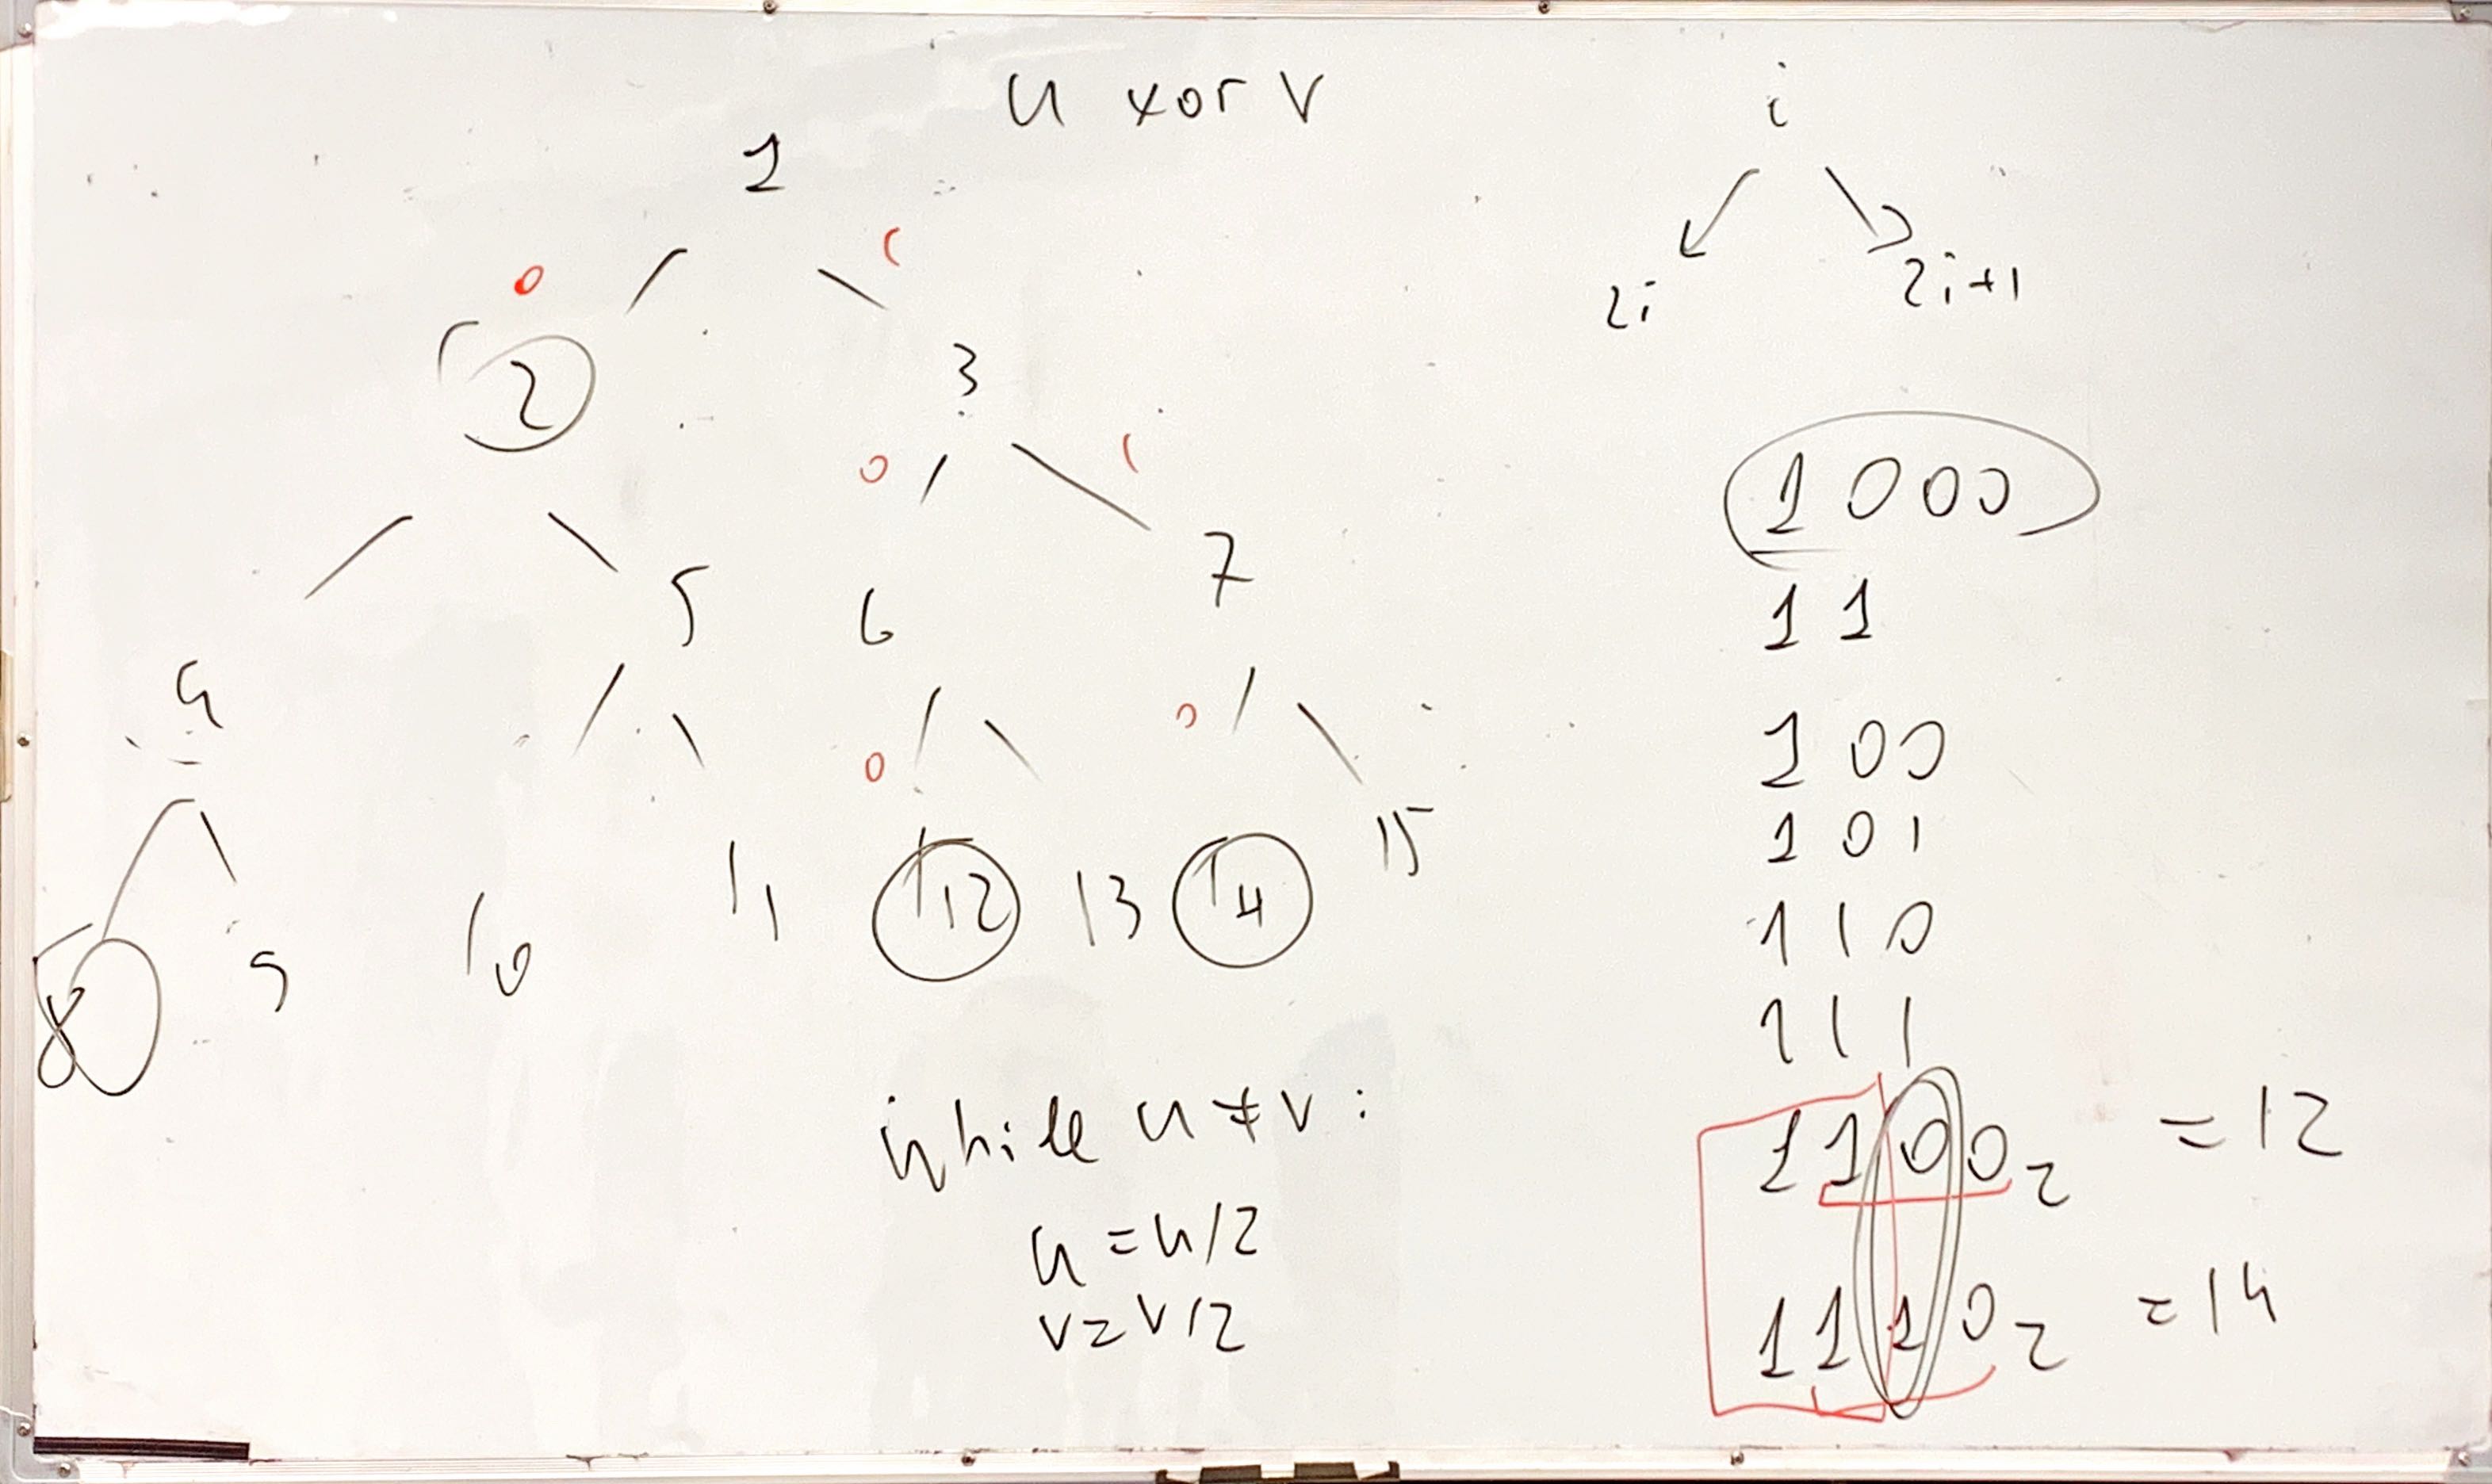 u xor v
1
0 1
2 3
0 1
4 5 6 7
0 0
8 9 10 11 12 13 14 15
while u ≠ v:
u = u/2
v = v/2
i
2i 2i+1
1000
11
100
101
110
111
1100₂ = 12
1110₂ = 14